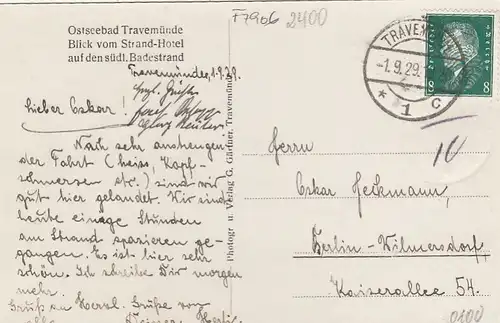 F7906 2400
Ostseebad Travemünde
Blick vom Strand-Hotel
auf den südl. Badestrand
Travemünde, 1.9.29.
TRAVEM
-1.9.29.
* 1 c
DEUTSCHES REICH
8 8
Lieber Oskar!
Nach sehr anstrengen
der Fahrt (heiss, Kopf-
schmerzen etc.) sind wir
gut hier gelandet. Wir sind
heute einige Stunden
am Strand spazieren ge-
gangen. Es ist hier sehr
schön. Ich schreibe Dir morgen
mehr.
Gruß an Grüße von
Photogr. u. Verlag G. Gärtner, Travemünde
Herrn
Oskar Heckmann,
Berlin-Wilmersdorf,
Kaiserallee 54.
0100